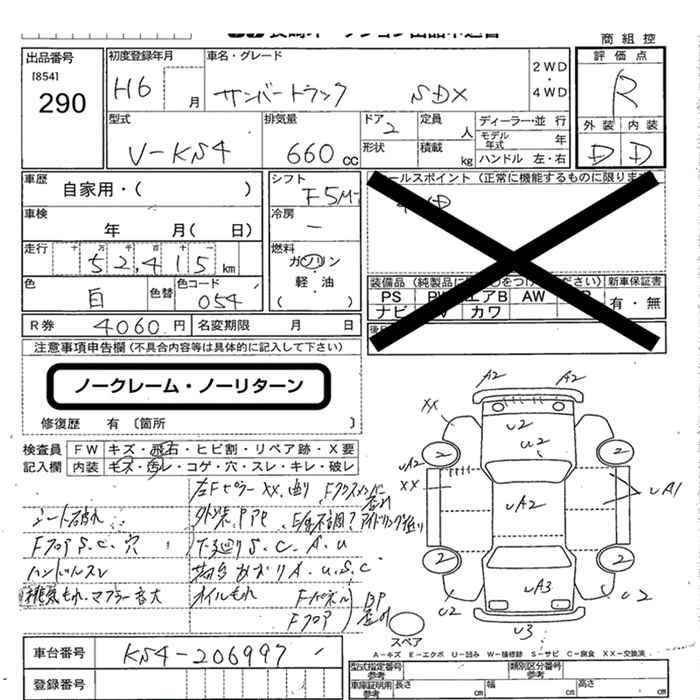 商組控
出品番号
[854]
290
初度登録年月
H6 月
車名・グレード
サンバートラック SDX
2WD
・
4WD
評価点
R
外装 内装
D D
型式
V-KS4
排気量
660 cc
ドア 2
形状
定員 人
積載 kg
ディーラー・並 行
モデル年式 年
ハンドル 左・右
車歴
自家用・( )
シフト
F5M
車検
年 月( 日)
冷房
走行
十 万 千 百 十 一
52,415 km
燃料
ガソリン
・
軽・油
( )
色
白
色替
色コード
054
R券 4060 円
名変期限 月 日
ールスポイント (正常に機能するものに限りま
装備品 (純製品に をつけ ださい)
新車保証書
PS PW エアB AW
ナビ カワ
有・無
注意事項申告欄 (不具合内容等は具体的に記入して下さい)
ノークレーム・ノーリターン
修復歴 有 〔箇所 〕
検査員記入欄
FW キズ・飛石・ヒビ割・リペア跡・X要
内装 キズ・汚レ・コゲ・穴・スレ・キレ・破レ
左FピラーXX,曲り
シート破れ
外装PPP
アイドリング
Fフロア S.C.穴
下廻り S.C.A.U
ハンドルスレ
A.U.S.C
排気もれ・マフラー音大
オイルもれ
Fパネル
Fフロア
A2 A2
XX
U2
U2
2 2
UA2
XX
UA2
UA1
2 2
UA3
U2 U2
U3
スペア
A-キズ E-エクボ U-凹み W-補修跡 S-サビ C-腐食 XX-交換済
車台番号
KS4-206997
登録番号
型式指定番号
参考
類別区分番号
参考
車庫証明用
参考
長さ cm
幅 cm
高さ cm